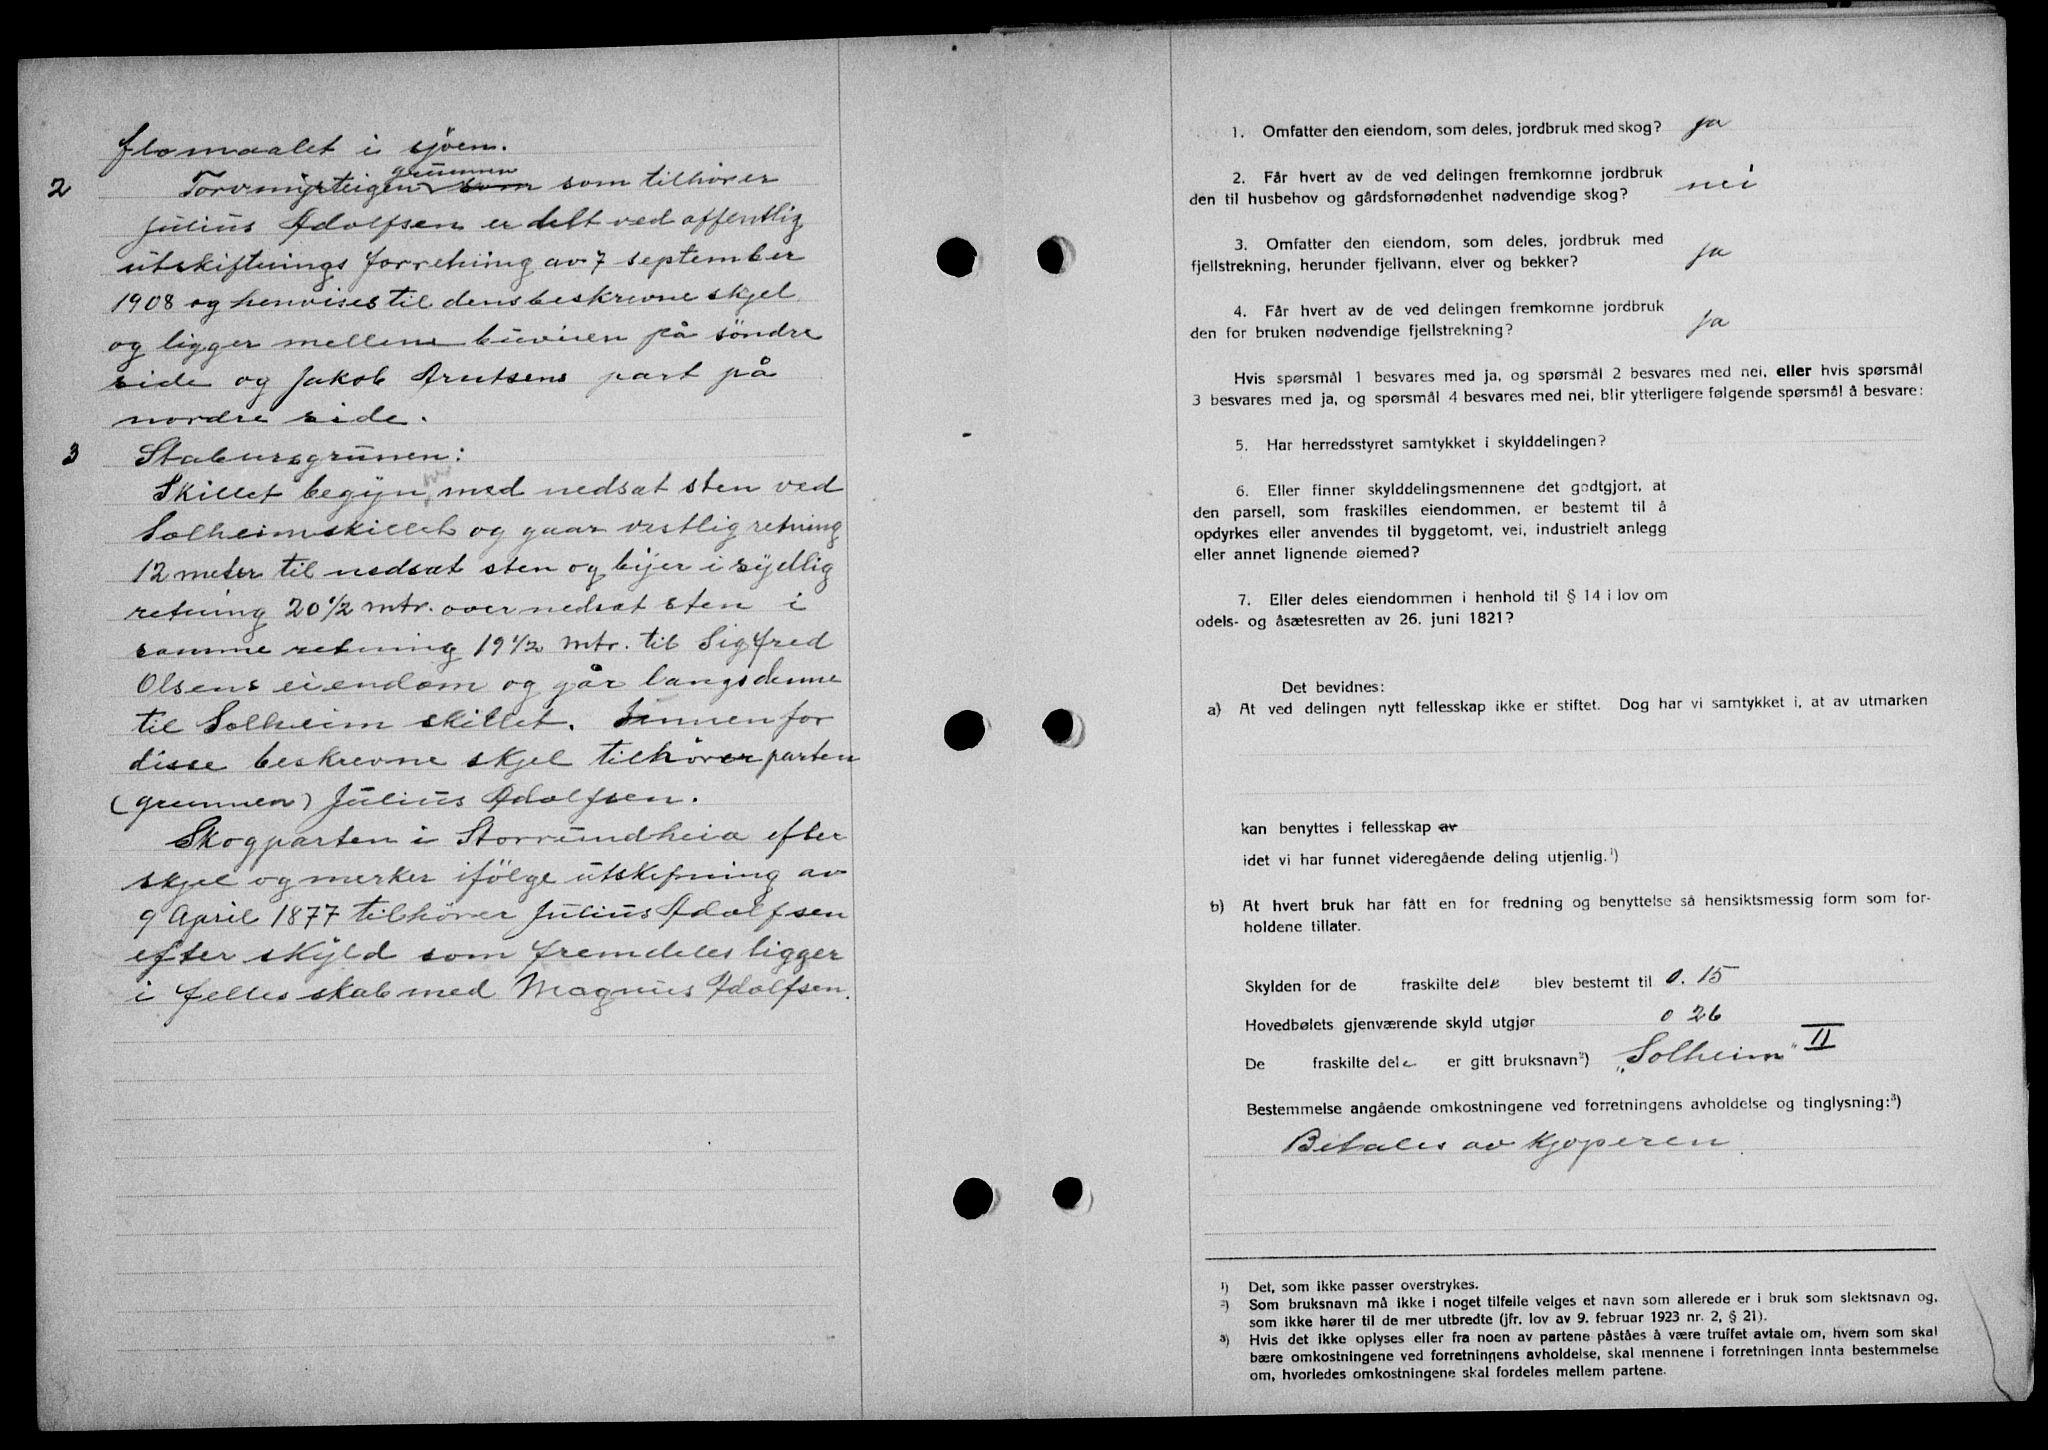 flomaalet i sjöen.
2 Torvmyrteigen grunnen som som tilhører
Julius Adolfsen er delt ved offentlig
utskiftnings forretning av 7 september
1908 og henvises til dens beskrevne skjel
og ligger mellem buveien på söndre
side og Jakob Arntsens part på
nordre side.
3 Staburs grunen:
Skillet begyn med nedsat sten ved
Solheimskillet og gaar vestlig retning
12 meter til nedsat sten og böjer i sydlig
retning 20 1/2 mtr. over nedsat sten i
samme retning 19 1/2 mtr. til Sigfred
Olsens eiendom og går langs denne
til Solheim skillet. Innenfor
disse beskrevne skjel tilhører parten
(grunnen) Julius Adolfsen.
Skogparten i Storrundheia efter
skjel og merker ifölge utskifning av
9 April 1877 tilhörer Julius Adolfsen
efter skyld som fremdeles ligger
i felles skab med Magnus Adolfsen.
1. Omfatter den eiendom, som deles, jordbruk med skog? ja
2. Får hvert av de ved delingen fremkomne jordbruk
den til husbehov og gårdsfornødenhet nødvendige skog? nei
3. Omfatter den eiendom, som deles, jordbruk med
fjellstrekning, herunder fjellvann, elver og bekker? ja
4. Får hvert av de ved delingen fremkomne jordbruk
den for bruken nødvendige fjellstrekning? ja
Hvis spørsmål 1 besvares med ja, og spørsmål 2 besvares med nei, eller hvis spørsmål
3 besvares med ja, og spørsmål 4 besvares med nei, blir ytterligere følgende spørsmål å besvare:
5. Har herredsstyret samtykket i skylddelingen?
6. Eller finner skylddelingsmennene det godtgjort, at
den parsell, som fraskilles eiendommen, er bestemt til å
opdyrkes eller anvendes til byggetomt, vei, industrielt anlegg
eller annet lignende øiemed?
7. Eller deles eiendommen i henhold til § 14 i lov om
odels- og åsætesretten av 26. juni 1821?
Det bevidnes:
a) At ved delingen nytt fellesskap ikke er stiftet. Dog har vi samtykket i, at av utmarken
kan benyttes i fellesskap av
idet vi har funnet videregående deling utjenlig.¹)
b) At hvert bruk har fått en for fredning og benyttelse så hensiktsmessig form som for-
holdene tillater.
Skylden for de fraskilte dele blev bestemt til 0.15
Hovedbølets gjenværende skyld utgjør 0 26
De fraskilte dele er gitt bruksnavn²) „Solheim" II
Bestemmelse angående omkostningene ved forretningens avholdelse og tinglysning:³)
Betales av kjøperen
¹) Det, som ikke passer overstrykes.
²) Som bruksnavn må ikke i noget tilfelle velges et navn som allerede er i bruk som slektsnavn og,
som ikke hører til de mer utbredte (jfr. lov av 9. februar 1923 nr. 2, § 21).
³) Hvis det ikke oplyses eller fra noen av partene påståes å være truffet avtale om, hvem som skal
bære omkostningene ved forretningens avholdelse, skal mennene i forretningen innta bestemmelse
om, hvorledes omkostningene skal fordeles mellem partene.